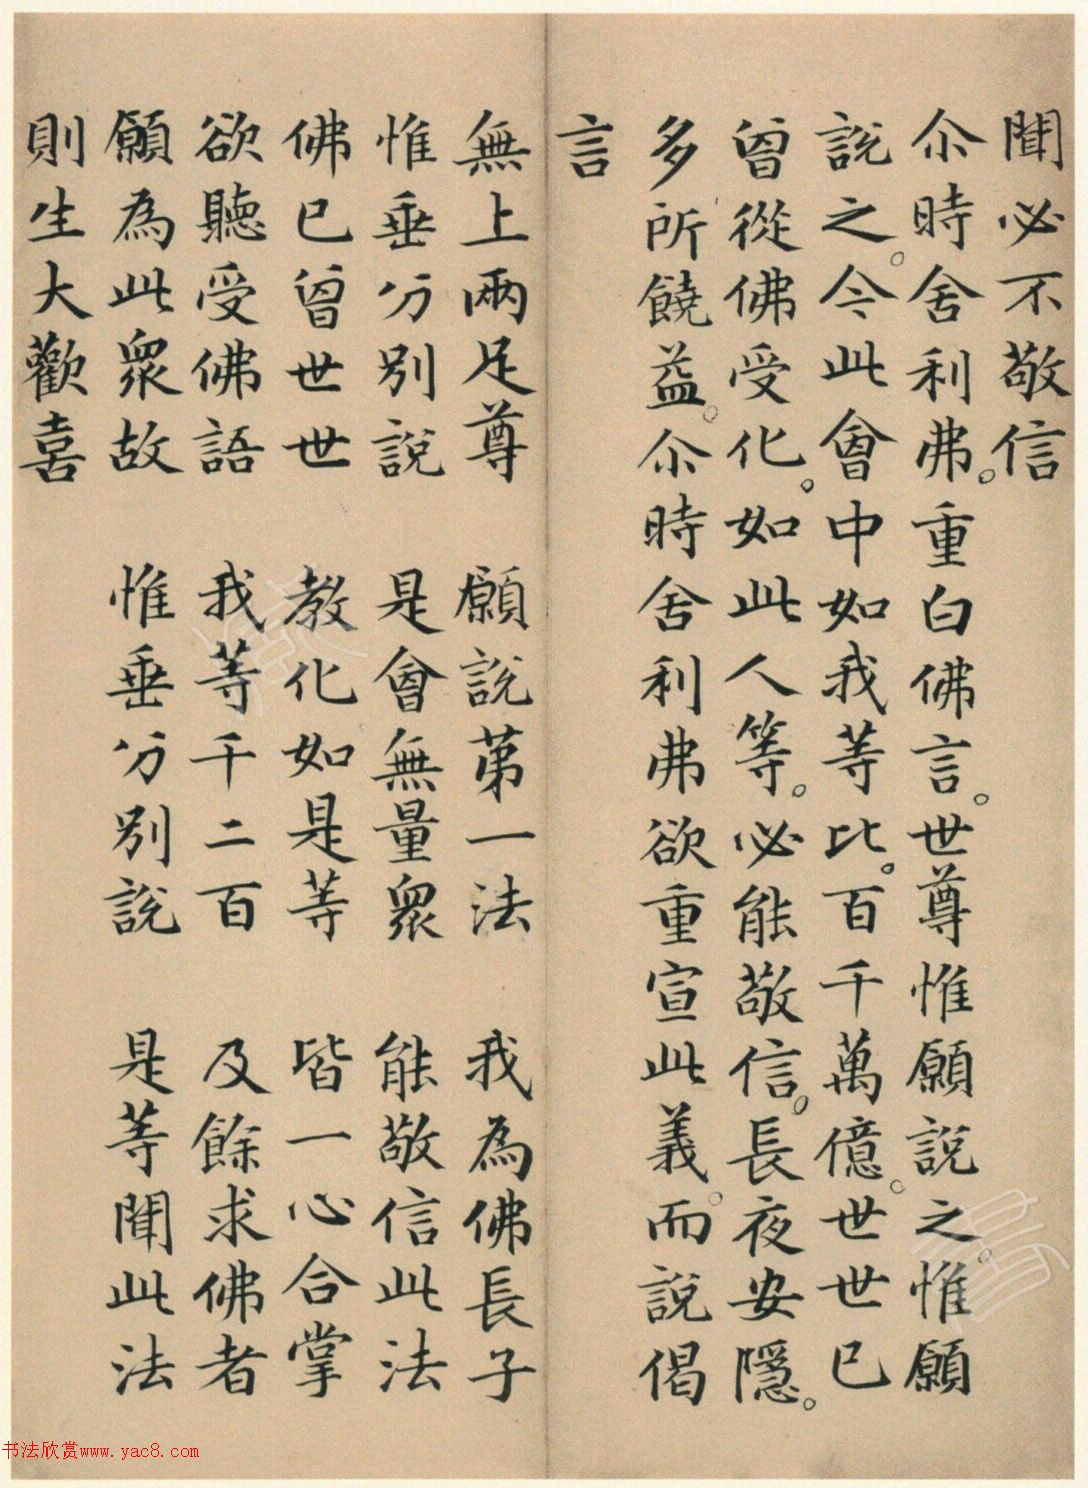 聞必不敬信
尒時舍利弗。重白佛言。世尊惟願說之。惟願
說之。今此會中如我等比。百千萬億。世世已
曾從佛受化。如此人等。必能敬信。長夜安隱。
多所饒益。尒時舍利弗欲重宣此義。而說偈
言
無上兩足尊 願說第一法 我為佛長子
惟垂分別說 是會無量眾 能敬信此法
佛已曾世世 教化如是等 皆一心合掌
欲聽受佛語 我等千二百 及餘求佛者
願為此眾故 惟垂分別說 是等聞此法
則生大歡喜
书法欣赏www.yac8.com